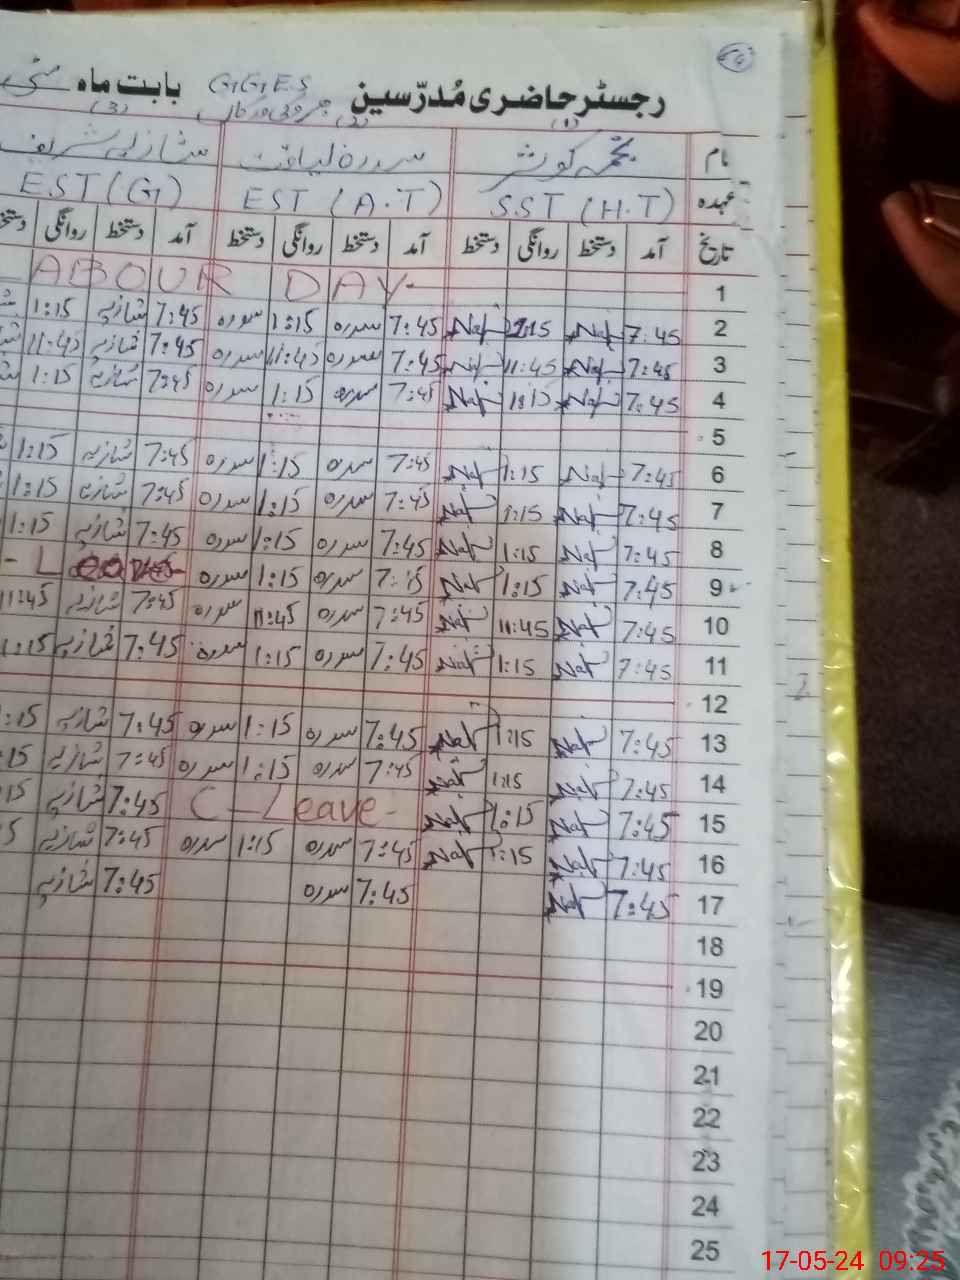 رجسٹر حاضری مُدرّسین G.G.E.S بابت ماہ مئی
(1) (2) (3)
نام کوثر سدرہ لیاقت شازیہ شریف
عہدہ SST (H.T) EST (A.T) EST (G)
تاریخ آمد دستخط روانگی دستخط آمد دستخط روانگی دستخط آمد دستخط روانگی
1 ABOUR DAY
2 7:45 Naf 1:15 Naf 7:45 سدرہ 1:15 سدرہ 7:45 شازیہ 1:15
3 7:45 Naf 11:45 Naf 7:45 سدرہ 11:45 سدرہ 7:45 شازیہ 11:45
4 7:45 Naf 1:15 Naf 7:45 سدرہ 1:15 سدرہ 7:45 شازیہ 1:15
5
6 7:45 Naf 1:15 Naf 7:45 سدرہ 1:15 سدرہ 7:45 شازیہ 1:15
7 7:45 Naf 1:15 Naf 7:45 سدرہ 1:15 سدرہ 7:45 شازیہ 1:15
8 7:45 Naf 1:15 Naf 7:45 سدرہ 1:15 سدرہ 7:45 شازیہ 1:15
9 7:45 Naf 1:15 Naf 7:45 سدرہ 1:15 سدرہ - Leave
10 7:45 Naf 11:45 Naf 7:45 سدرہ 11:45 سدرہ 7:45 شازیہ 11:45
11 7:45 Naf 1:15 Naf 7:45 سدرہ 1:15 سدرہ 7:45 شازیہ 1:15
12
13 7:45 Naf 1:15 Naf 7:45 سدرہ 1:15 سدرہ 7:45 شازیہ :15
14 7:45 Naf 1:15 Naf 7:45 سدرہ 1:15 سدرہ 7:45 شازیہ 15
15 7:45 Naf 1:15 Naf C-Leave- 7:45 شازیہ 15
16 7:45 Naf 1:15 Naf 7:45 سدرہ 1:15 سدرہ 7:45 شازیہ 5
17 7:45 Naf 7:45 سدرہ 7:45 شازیہ
18
19
20
21
22
23
24
25
17-05-24 09:25